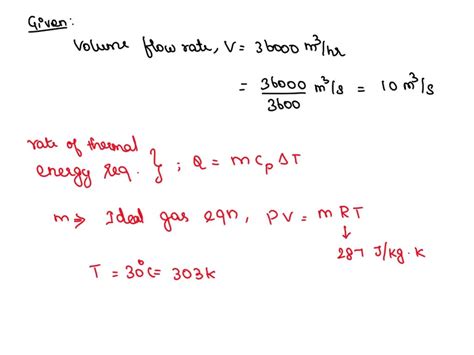 Given:
Volume flow rate, V = 36000 m³/hr
= 36000/3600 m³/s = 10 m³/s
rate of thermal
energy req. } ; Q = m Cp ΔT
m ⇒ Ideal gas eqn, PV = mRT
↓
287 J/kg.K
T = 30°C = 303K